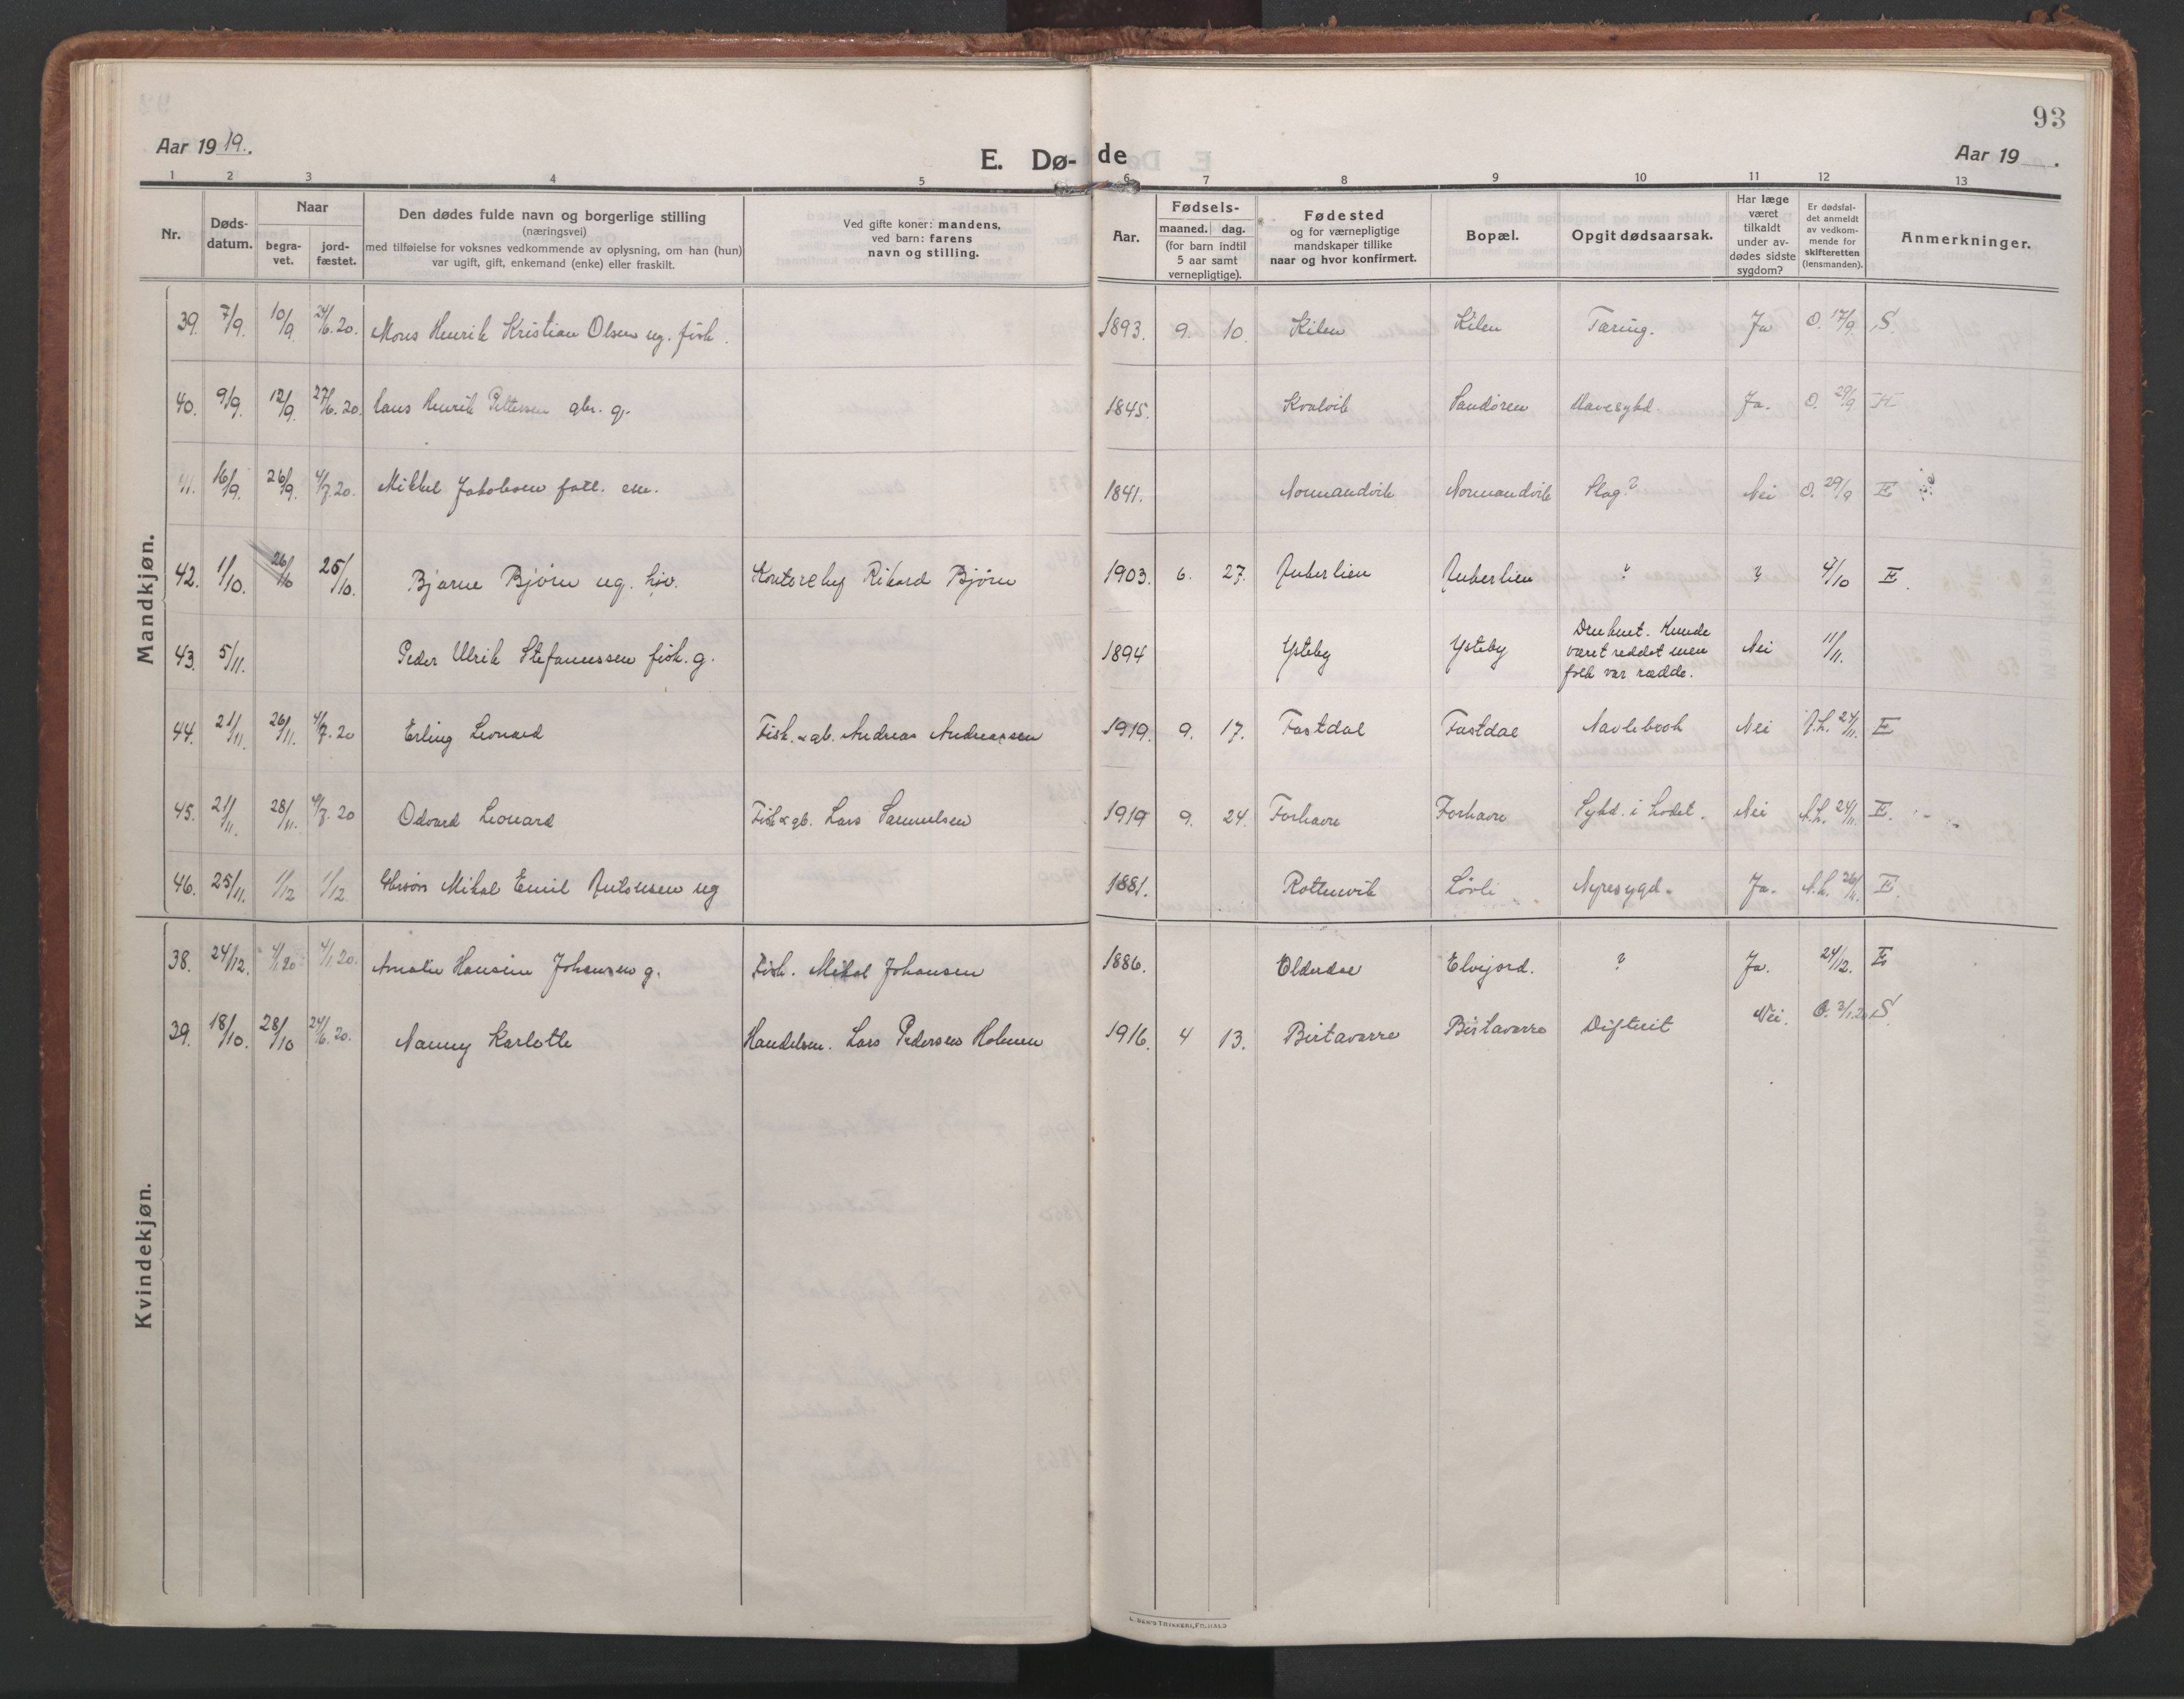 93
Aar 1919.
E. Dø-
de
Aar 19 .
1 2 3 4 5 6 7 8 9 10 11 12 13
Nr.
Døds-
datum.
Naar
begra-
vet.
jord-
fæstet.
Den dødes fulde navn og borgerlige stilling
(næringsvei)
med tilføielse for voksnes vedkommende av oplysning, om han (hun)
var ugift, gift, enkemand (enke) eller fraskilt.
Ved gifte koner: mandens,
ved barn: farens
navn og stilling.
Aar.
Fødsels-
maaned. dag.
(for barn indtil
5 aar samt
vernepligtige).
Fødested
og for værnepligtige
mandskaper tillike
naar og hvor konfirmert.
Bopæl.
Opgit dødsaarsak.
Har læge
været
tilkaldt
under av-
dødes sidste
sygdom?
Er dødsfal-
det anmeldt
av vedkom-
mende for
skifteretten
(lensmanden).
Anmerkninger.
Mandkjøn.
39. 7/9. 10/9. 24/6.20. Mons Henrik Kristian Olsen ug. fisk. 1893. 9. 10. Kilen Kilen Tæring. Ja O. 17/9. S.
40. 9/9. 12/9. 27/6.20. Hans Henrik Pettersen gbr. g. 1845. Kvalvik Sandøren Mavesykd. Ja. O. 29/9
41. 16/9. 26/9. 4/7.20. Mikkel Jakobsen fatt. em. 1841. Normandvik Normandvik Slag? Nei O. 29/9 E
42. 1/10. 26/10 25/10. Bjarne Bjørn ug. Kontorchef Rikard Bjørn 1903. 6. 27. ? ? 4/10 E.
43. 5/11. Peder Ulrik Stefanussen fisk. g. 1894 Ysteby Ysteby Druknet. Kunde
været reddet men
folk var rædde. Nei 11/11.
44. 21/11. 26/11. 4/7.20 Erling Leonard Fisk. & gb. Andreas Andreassen 1919. 9. 17. Fastdal Fastdal Navlebrok Nei 24/11. E
45. 21/11. 28/11. 4/7.20 Odvard Leonard Fisk & gb. Lars Samuelsen 1919 9. 24. Forhavre Forhavre Sykd. i hodet. Nei 24/11. E.
46. 25/11. 1/12 1/12. Mikal Emil Antonsen ug 1881. Rottenvik Løvli Nyresygd. Ja. 26/11. E.
Kvindekjøn.
38. 24/12. 4/1.20 4/1.20. Amalie Hansine Johansen g. Fisk. Mikal Johansen 1886. Olderdal Elvejord. ? Ja. 24/12. E
39. 18/10. 28/10 24/6.20. Nanny Karlotte Handelsm. Lars Pedersen Holmen 1916. 4 13. Birtavarre Birtavarre Difterit Nei. O. 3/1.20 S.